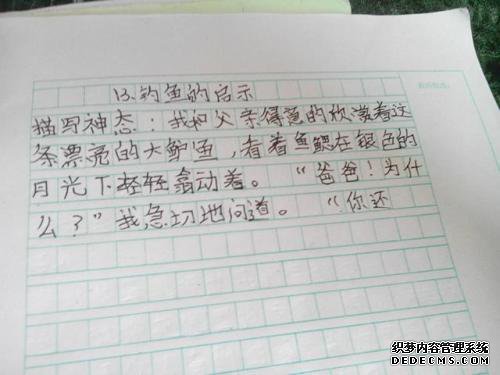 13.钓鱼的启示
描写神态:我和父亲得意的欣赏着这
条漂亮的大鲈鱼,看着鱼鳃在银色的
月光下轻轻翕动着。 “爸爸!为什
么?”我急切地问道。 “你还
织梦内容管理系统
DEDECMS.COM